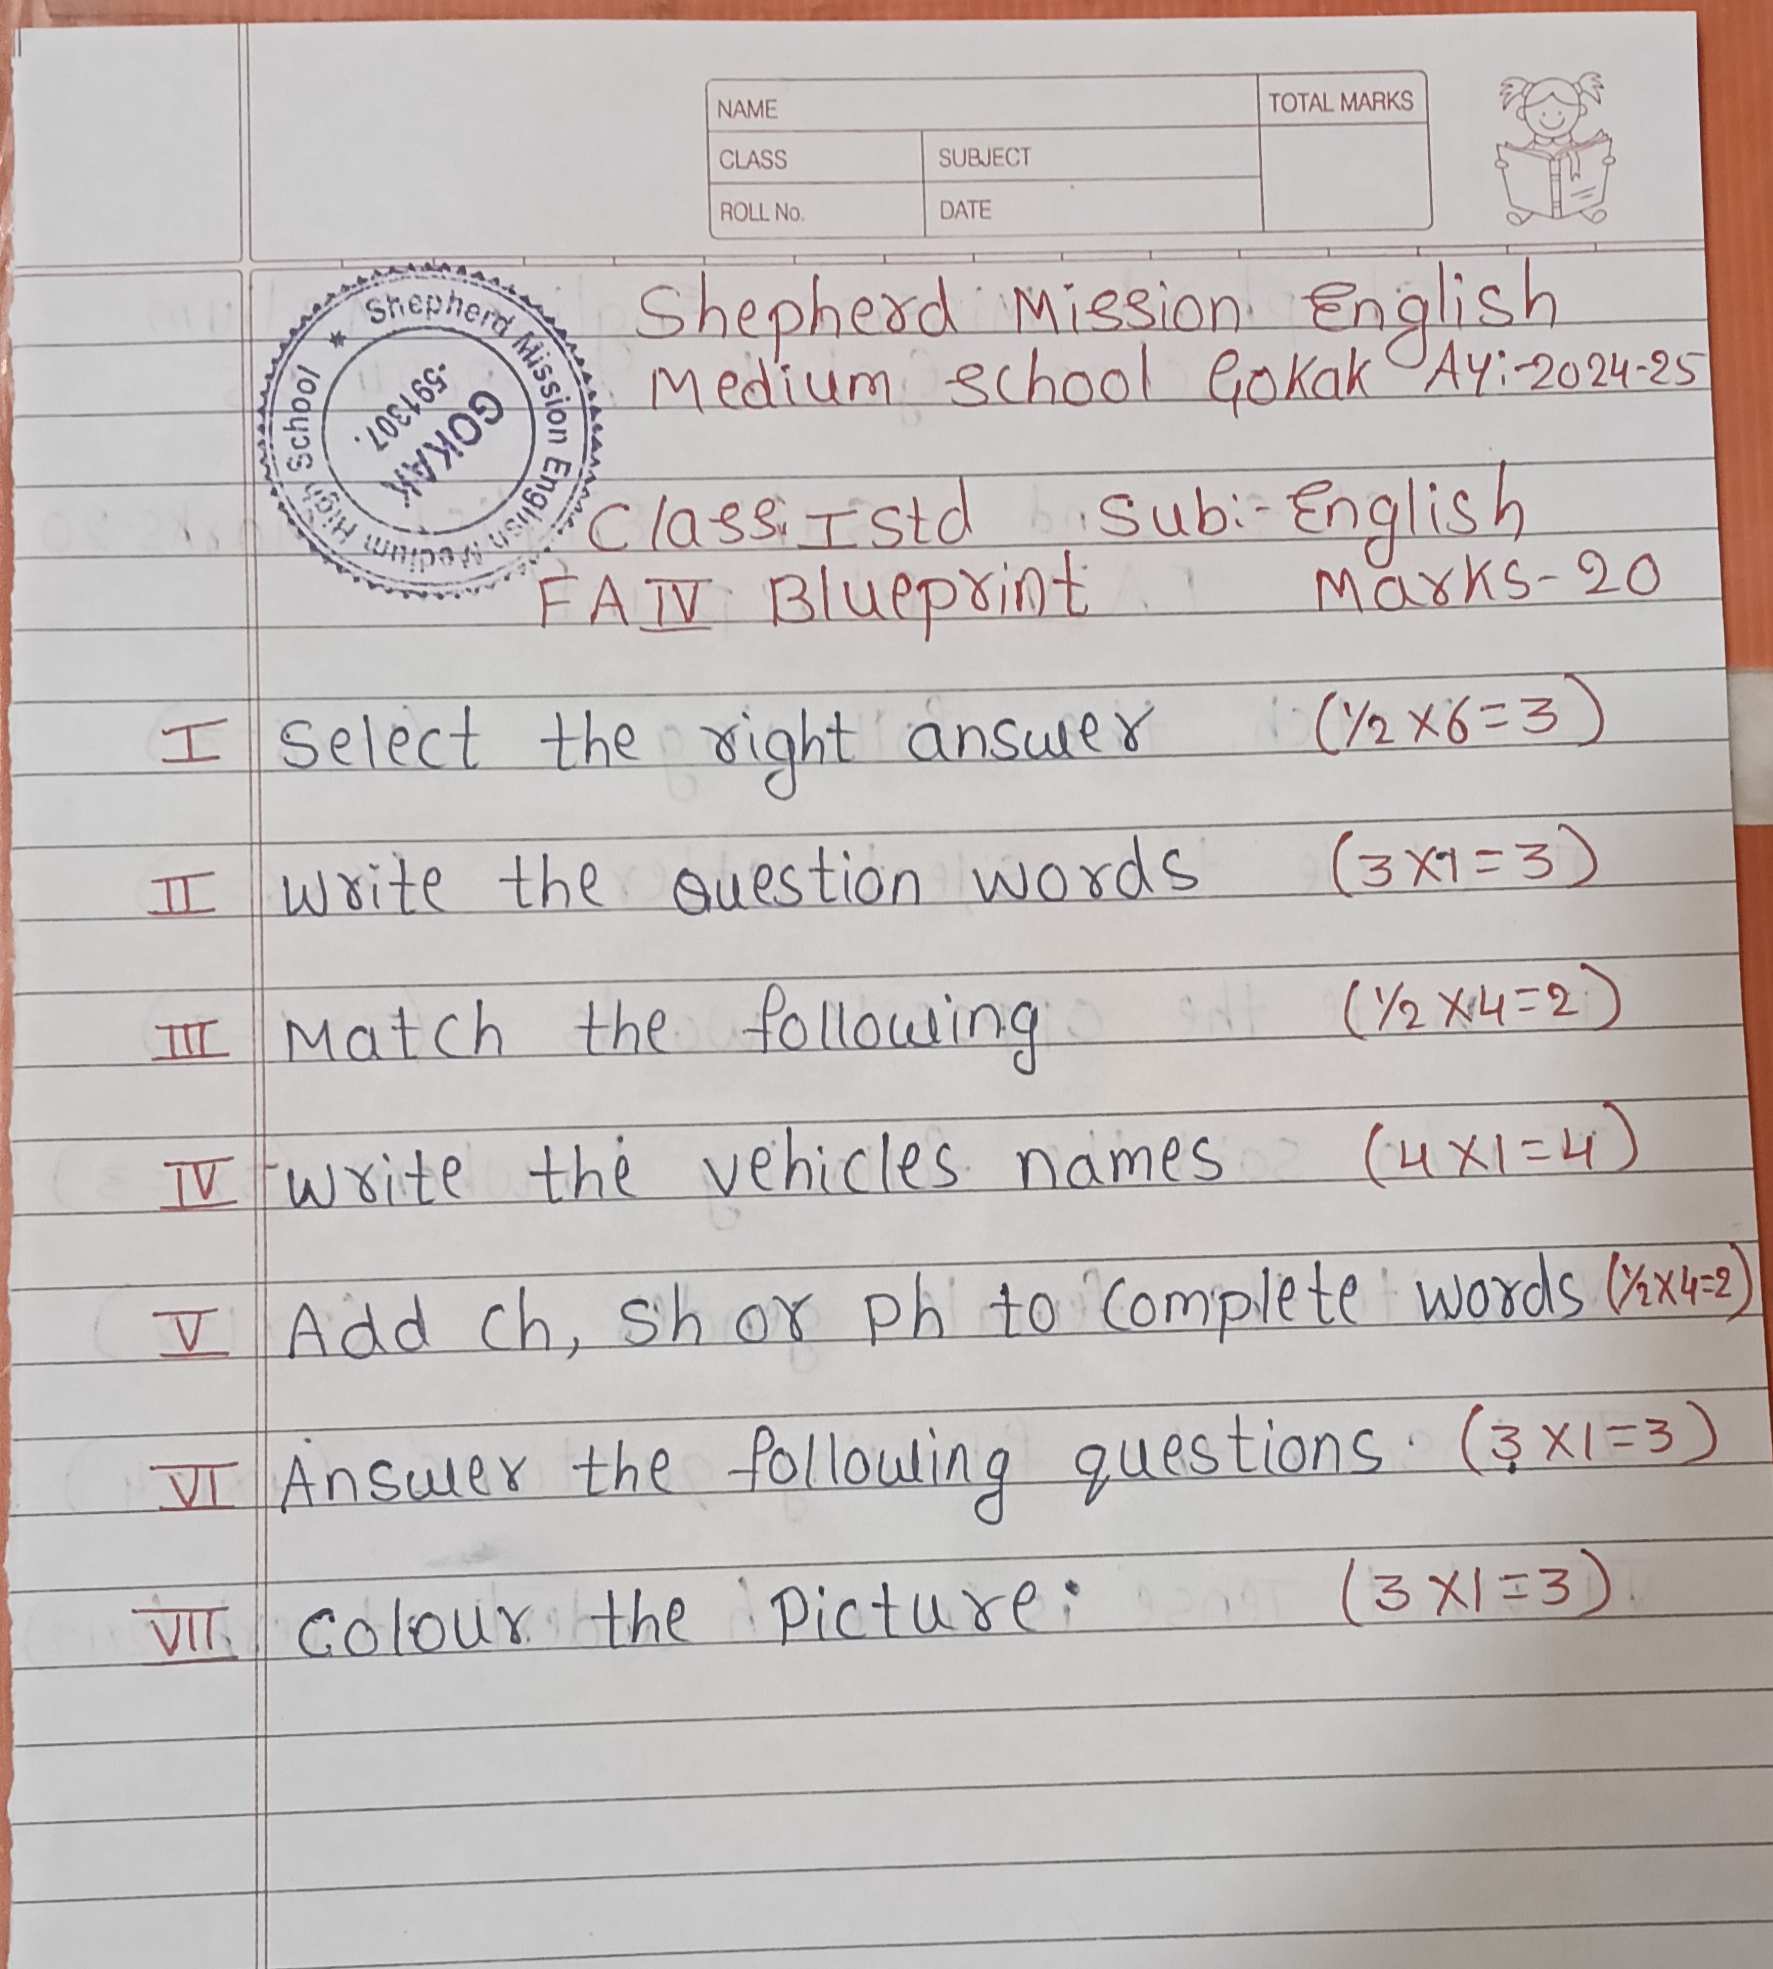 NAME
TOTAL MARKS
CLASS
SUBJECT
ROLL No.
DATE
Shepherd Mission English Medium High School *
GOKAK
-591307.
Shepherd Mission English
Medium School Gokak AY:-2024-25
Class: I std Sub:- English
FA IV Blueprint Marks-20
I Select the right answer (1/2 x 6 = 3)
II Write the Question words (3 x 1 = 3)
III Match the following (1/2 x 4 = 2)
IV Write the vehicles names (4 x 1 = 4)
V Add ch, sh or ph to complete words (1/2 x 4 = 2)
VI Answer the following questions. (3 x 1 = 3)
VII Colour the Picture: (3 x 1 = 3)